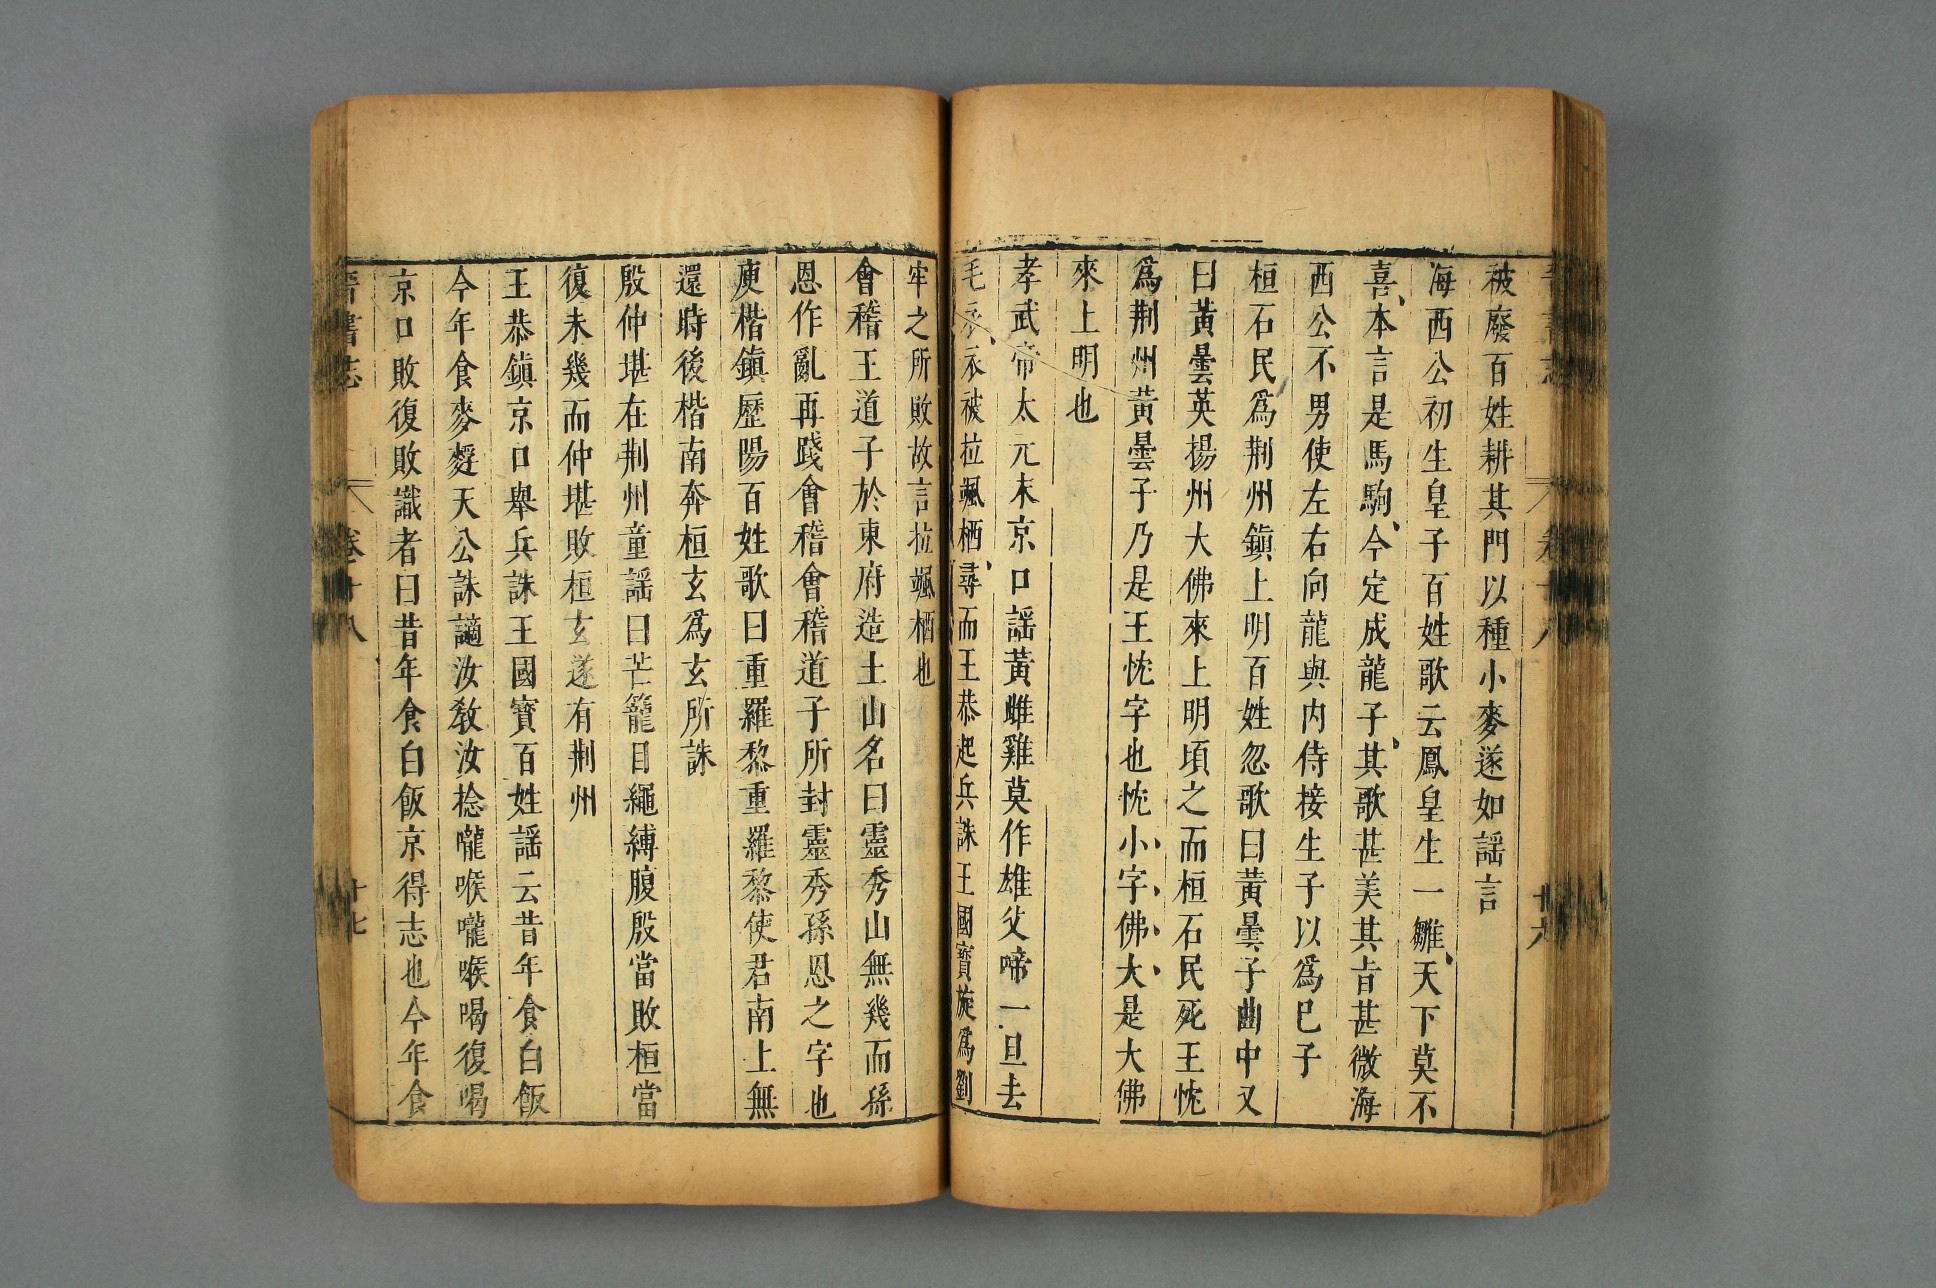 被廢百姓耕其門以種小麥遂如謡言
海西公初生皇子百姓歌云鳳皇生一雛天下莫不
喜本言是馬駒今定成龍子其歌甚美其旨甚微海
西公不男使左右向龍與内侍接生子以爲巳子
桓石民爲荆州鎭上明百姓忽歌曰黃曇子曲中又
曰黃曇英揚州大佛來上明頃之而桓石民死王忱
爲荆州黃曇子乃是王忱字也忱小字佛大是大佛
來上明也
孝武帝太元末京口謡黃雌雞莫作雄父啼一旦去
毛衣衣被拉颯栖尋而王恭起兵誅王國寳旋爲劉
牢之所敗故言拉颯栖也
會稽王道子於東府造土山名曰靈秀山無幾而孫
恩作亂再踐會稽會稽道子所封靈秀孫恩之字也
庾楷鎭歷陽百姓歌曰重羅黎重羅黎使君南上無
還時後楷南奔桓玄爲玄所誅
殷仲堪在荆州童謡曰芒籠目繩縛腹殷當敗桓當
復未幾而仲堪敗桓玄遂有荆州
王恭鎭京口舉兵誅王國寳百姓謡云昔年食白飯
今年食麥麪天公誅讁汝敎汝捻嚨喉嚨喉喝復喝
京口敗復敗識者曰昔年食白飯京得志也今年食
晉書志 卷十八 十七